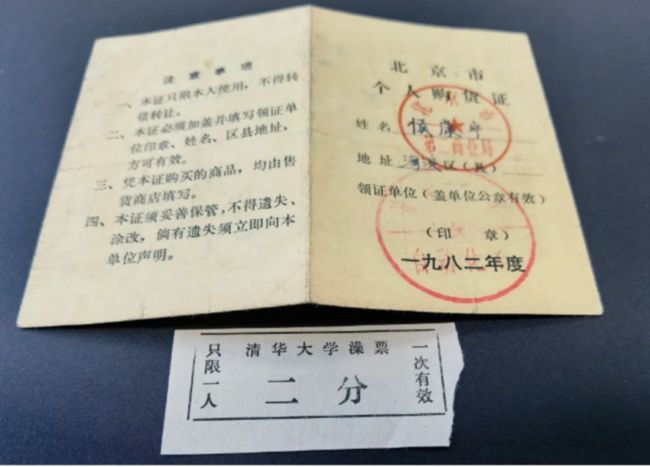 注意事项
一、本证只限本人使用，不得转
借转让。
二、本证必须加盖并填写领证单
位印章、姓名、区县地址，
方可有效。
三、凭本证购买的商品，均由售
货商店填写。
四、本证须妥善保管，不得遗失、
涂改，倘有遗失须立即向本
单位声明。
北京市
个人购货证
姓名
第二商业局
地址 海淀区（县）
领证单位（盖单位公章有效）
（印 章）
一九八二年度
只限一人
清华大学澡票
二分
一次有效